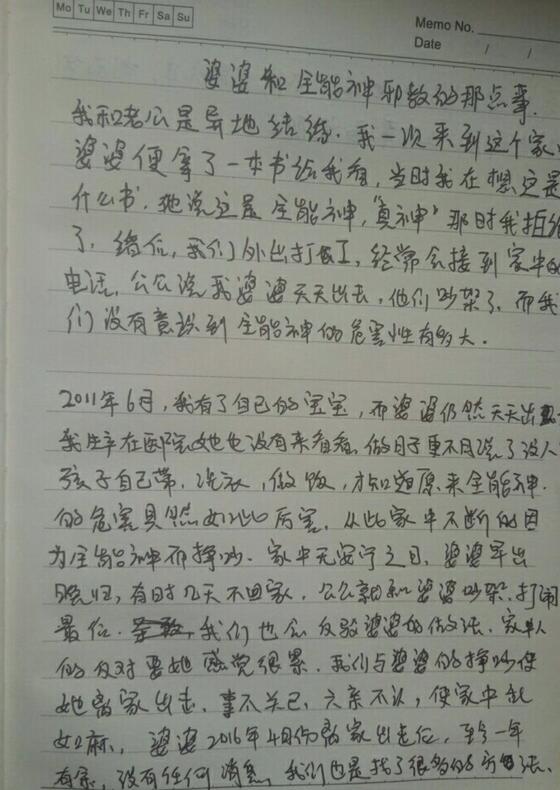 Mo Tu We Th Fr Sa Su
Memo No.
Date / /
婆婆和全能神邪教的那点事.
我和老公是异地结婚. 我一次来到这个家
婆婆便拿了一本书给我看, 当时我在想这是
什么书. 她说这是全能神, “真神” 那时我拒绝
了. 婚后, 我们外出打工, 经常会接到家中的
电话. 公公说我婆婆天天出去, 他们吵架了. 而我
们没有意识到全能神的危害性有多大.
2011年6月, 我有了自己的宝宝, 而婆婆仍然天天出
我生在医院她也没有来看看. 做月子更不用说了没人
孩子自己带, 洗衣, 做饭, 才知道原来全能神.
的危害竟然如此厉害. 从此家中不断的因
为全能神而挣吵. 家中无安宁之日. 婆婆早出
晚归, 有时几天不回家. 公公就和婆婆吵架. 打闹
最后. 我们也会反驳婆婆的做法. 家里人
的反对要她感觉很累. 我们与婆婆的挣吵使
她离家出走. 事不关已. 六亲不认, 使家中乱
如麻. 婆婆2016年4月份离家出走后, 至今一年
有余, 没有任何消息. 我们也是找了很多的方法.